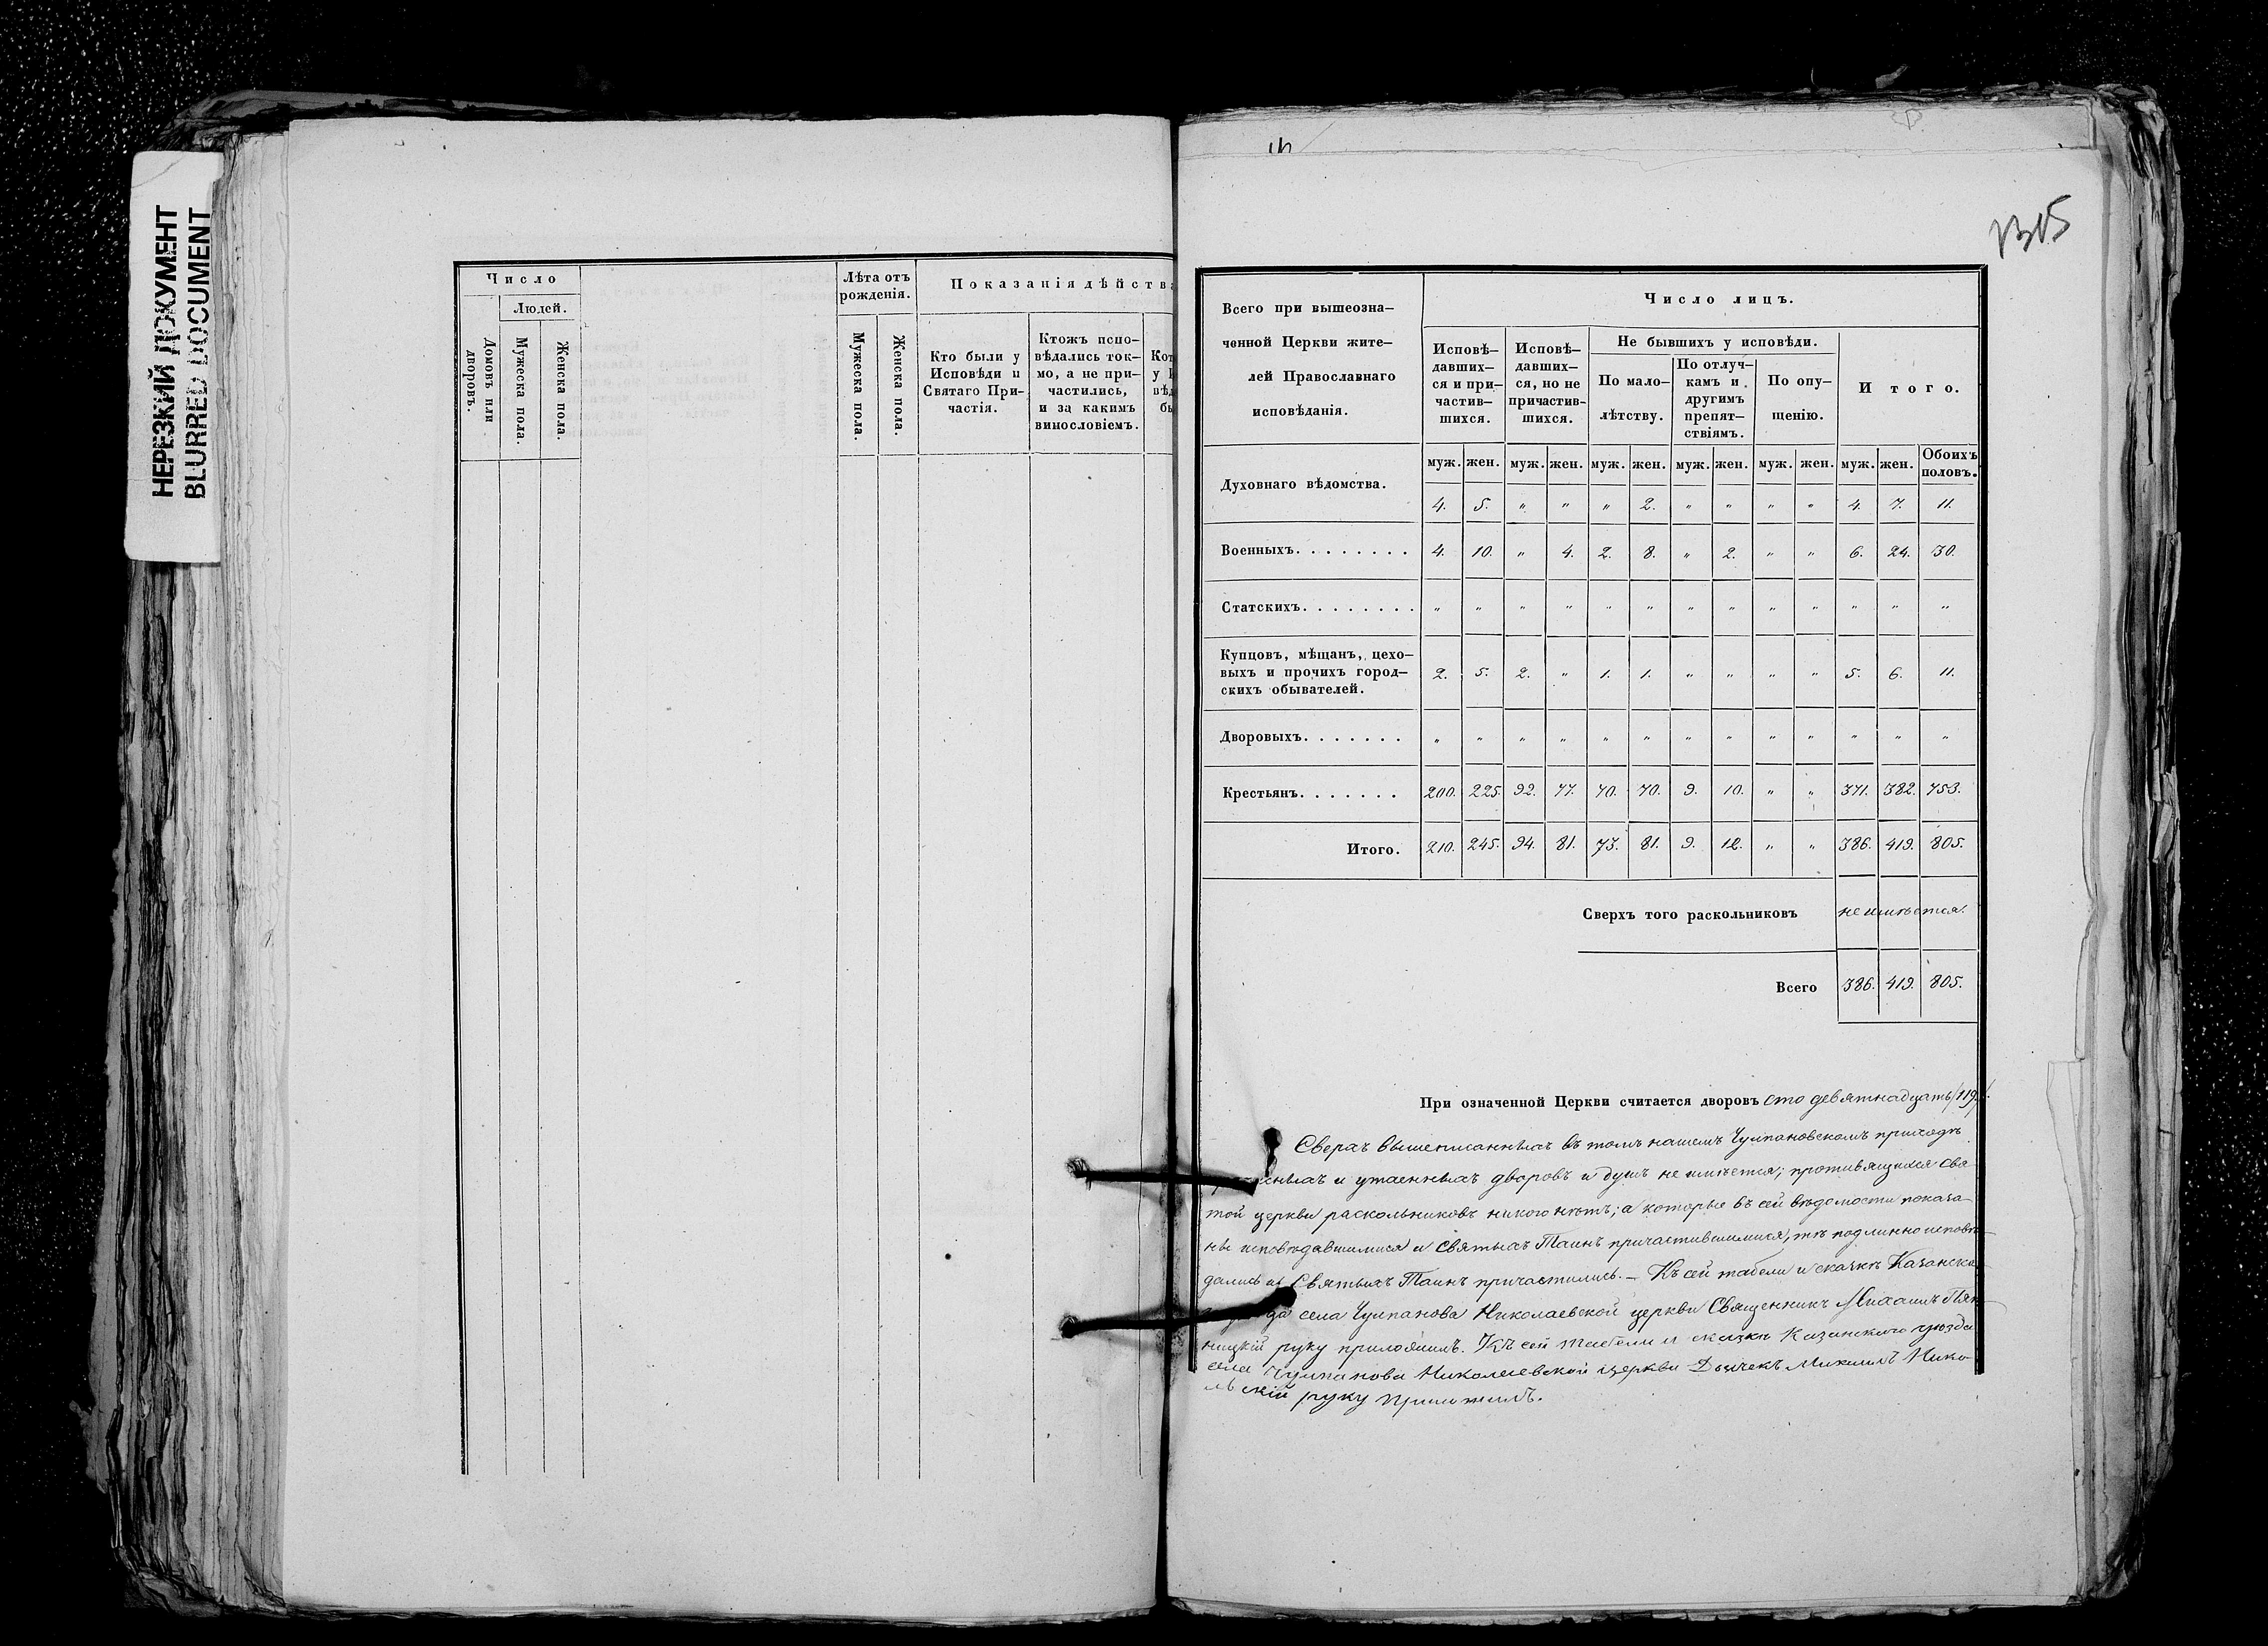 НЕРЕЗКИЙ ДОКУМЕНТ
BLURRED DOCUMENT
Число
Людей.
Домовъ или дворовъ.
Мужеска пола.
Женска пола.
Лѣта отъ рожденія.
Мужеска пола.
Женска пола.
Показанія дѣйства
Кто были у Исповѣди и Святаго При-частія.
Ктожъ испо-вѣдались ток-мо, а не при-частились, и за какимъ винословіемъ.
Всего при вышеозна-
ченной Церкви жите-
лей Православнаго
исповѣданія.
Число лицъ.
Исповѣ-давших-ся и при-частив-шихся.
Исповѣ-давших-ся, но не причастив-шихся.
Не бывшихъ у исповѣди.
По мало-лѣтству.
По отлуч-камъ и другимъ препят-ствіямъ.
По опу-щенію.
Итого.
муж. жен. муж. жен. муж. жен. муж. жен. муж. жен. муж. жен. Обоихъ половъ.
Духовнаго вѣдомства. 4. 5. " " " 2. " " " " 4. 7. 11.
Военныхъ. . . . . . . . 4. 10. " 4. 2. 8. " 2. " " 6. 24. 30.
Статскихъ. . . . . . . . " " " " " " " " " " " " "
Купцовъ, мѣщанъ, цехо-
выхъ и прочихъ город- 2. 5. 2. " 1. 1. " " " " 5. 6. 11.
скихъ обывателей.
Дворовыхъ. . . . . . . " " " " " " " " " " " " "
Крестьянъ. . . . . . . 200. 225. 92. 77. 70. 70. 9. 10. " " 371. 382. 753.
Итого. 210. 245. 94. 81. 73. 81. 9. 12. " " 386. 419. 805.
Сверхъ того раскольниковъ не имѣется.
Всего 386. 419. 805.
При означенной Церкви считается дворовъ сто девятнадцать /119/.
Сверхъ вышеписанныхъ въ томъ нашемъ Чулпановскомъ приходѣ
и утаенныхъ дворовъ и душъ не имѣется; противящихся свя-
той церкви раскольниковъ никого нѣтъ; а которые въ сей вѣдомости показа-
ны исповѣдавшимися и Святыхъ Таинъ причастившимися, тѣ подлинно исповѣ-
дались и Святыхъ Таинъ причастились. — Къ сей табели и сказкѣ Казанска-
села Чулпанова Николаевской церкви Священникъ Михаилъ Пят-
ницкій руку приложилъ. Къ сей табели и сказкѣ Казанскаго уѣзда
села Чулпанова Николаевской церкви Дьячекъ Михаилъ Нико-
льскій руку приложилъ.